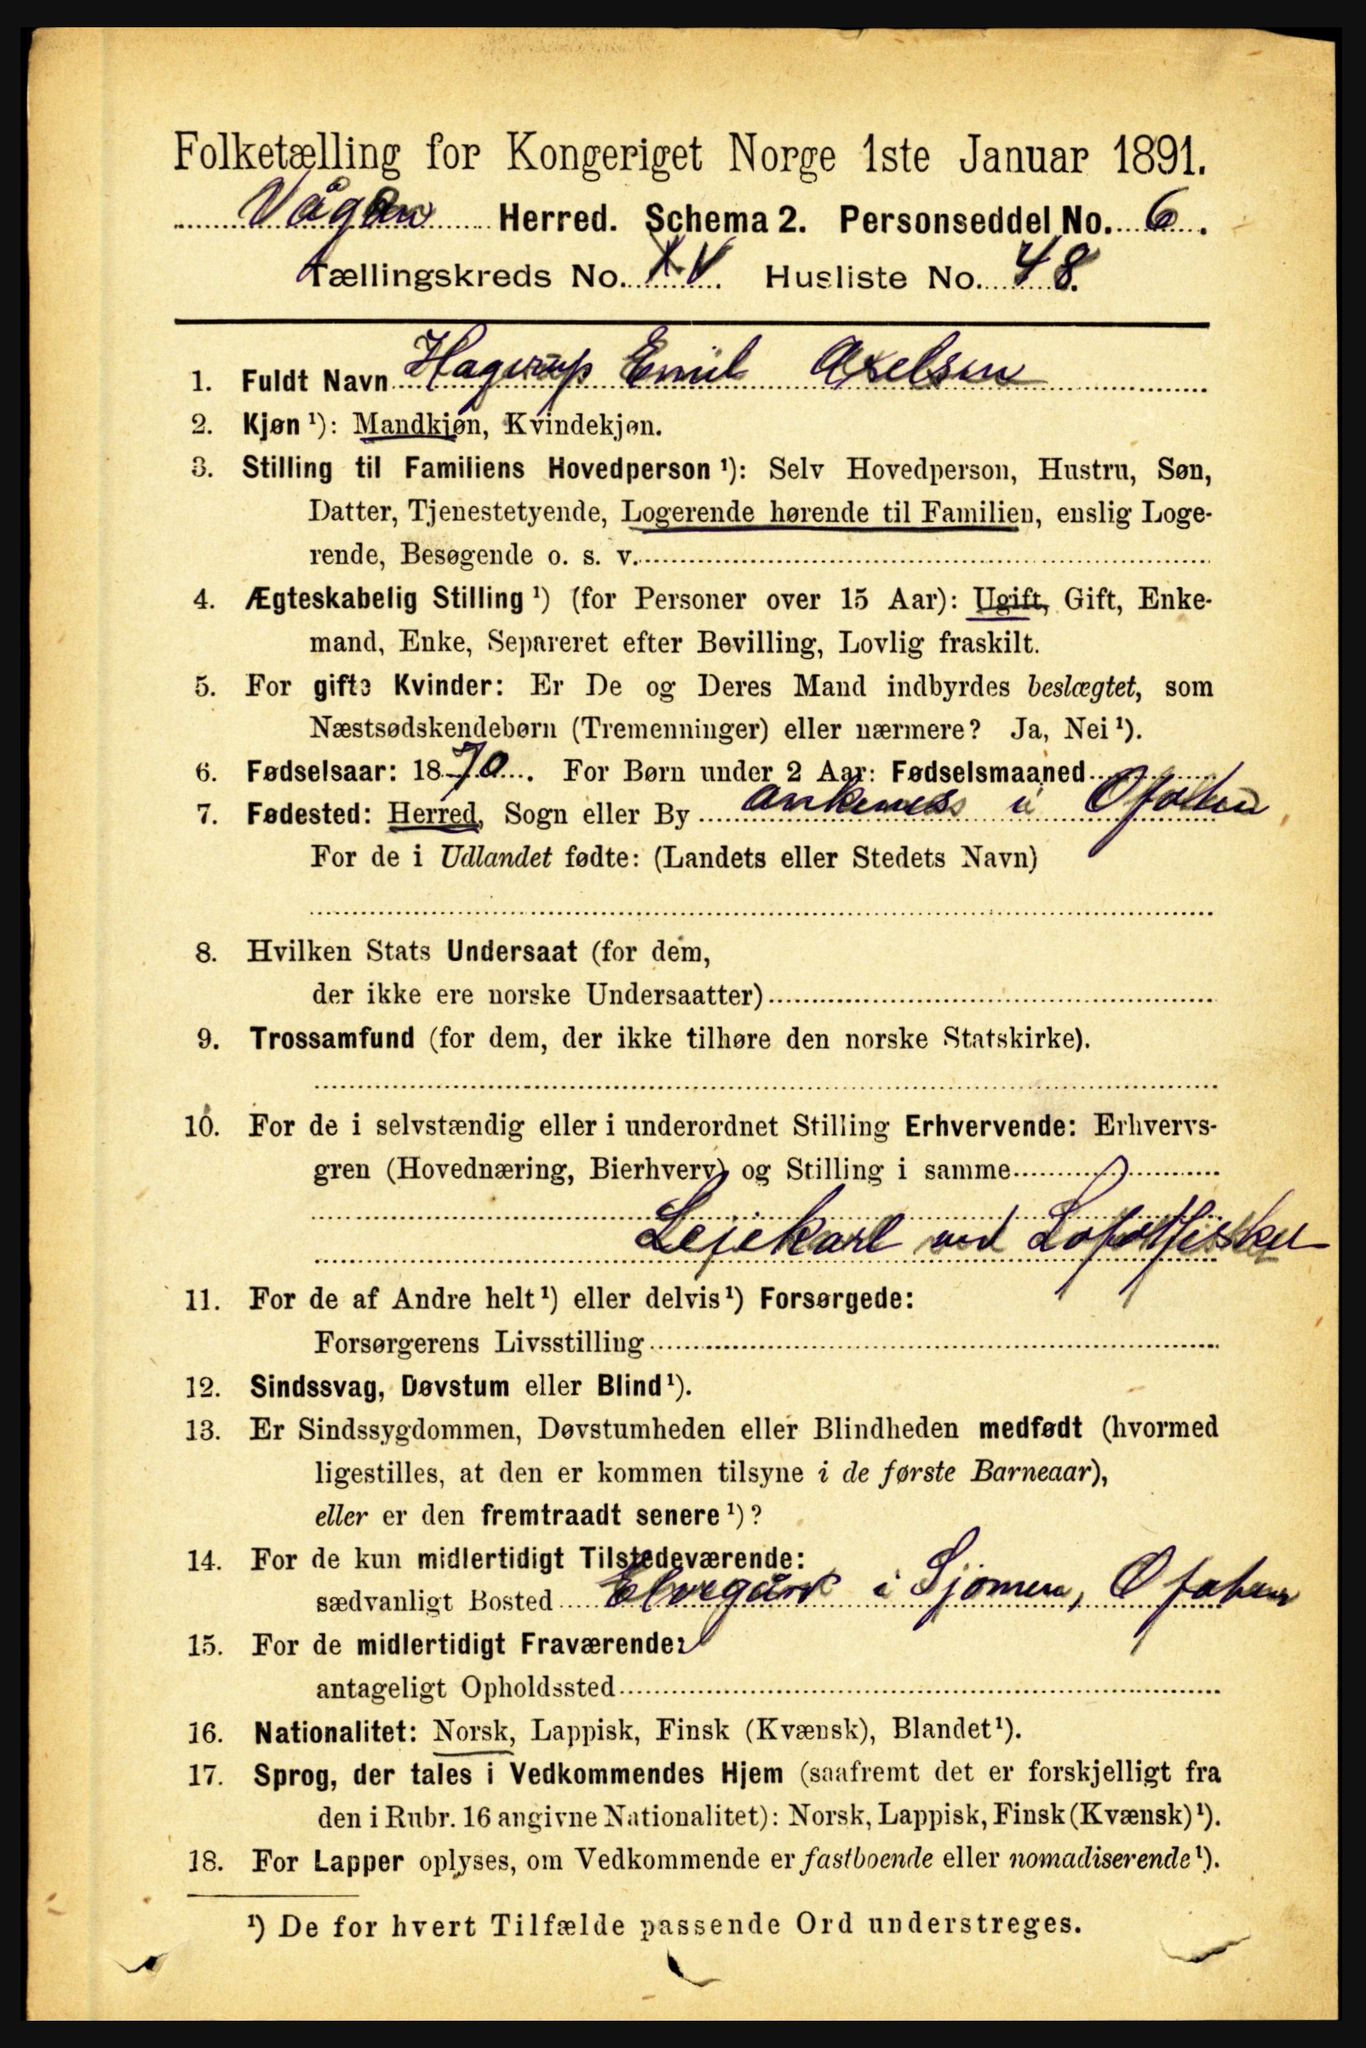 Folketælling for Kongeriget Norge 1ste Januar 1891.
Vågan Herred. Schema 2. Personseddel No. 6.
Tællingskreds No. XV. Husliste No. 48.
1. Fuldt Navn Hagerup Emil Axelsen
2. Kjøn ¹): Mandkjøn, Kvindekjøn.
3. Stilling til Familiens Hovedperson ¹): Selv Hovedperson, Hustru, Søn,
Datter, Tjenestetyende, Logerende hørende til Familien, enslig Loge-
rende, Besøgende o. s. v.
4. Ægteskabelig Stilling ¹) (for Personer over 15 Aar): Ugift, Gift, Enke-
mand, Enke, Separeret efter Bevilling, Lovlig fraskilt.
5. For gifte Kvinder: Er De og Deres Mand indbyrdes beslægtet, som
Næstsødskendebørn (Tremenninger) eller nærmere? Ja, Nei ¹).
6. Fødselsaar: 1870. For Børn under 2 Aar: Fødselsmaaned
7. Fødested: Herred, Sogn eller By Ankenes i Ofoten
For de i Udlandet fødte: (Landets eller Stedets Navn)
8. Hvilken Stats Undersaat (for dem,
der ikke ere norske Undersaatter)
9. Trossamfund (for dem, der ikke tilhøre den norske Statskirke).
10. For de i selvstændig eller i underordnet Stilling Erhvervende: Erhvervs-
gren (Hovednæring, Bierhverv) og Stilling i samme
Leiekarl ved Lofotfisket
11. For de af Andre helt ¹) eller delvis ¹) Forsørgede:
Forsørgerens Livsstilling
12. Sindssvag, Døvstum eller Blind ¹).
13. Er Sindssygdommen, Døvstumheden eller Blindheden medfødt (hvormed
ligestilles, at den er kommen tilsyne i de første Barneaar),
eller er den fremtraadt senere ¹)?
14. For de kun midlertidigt Tilstedeværende:
sædvanligt Bosted Elvegård i Sjomen, Ofoten
15. For de midlertidigt Fraværende:
antageligt Opholdssted
16. Nationalitet: Norsk, Lappisk, Finsk (Kvænsk), Blandet ¹).
17. Sprog, der tales i Vedkommendes Hjem (saafremt det er forskjelligt fra
den i Rubr. 16 angivne Nationalitet): Norsk, Lappisk, Finsk (Kvænsk) ¹).
18. For Lapper oplyses, om Vedkommende er fastboende eller nomadiserende ¹).
¹) De for hvert Tilfælde passende Ord understreges.